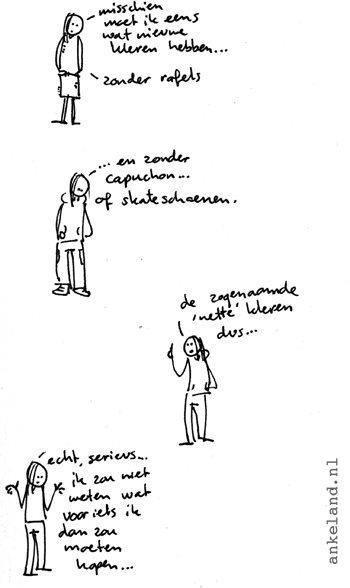 misschien
moet ik eens
wat nieuwe
kleren hebben...
zonder rafels
... en zonder
capuchon...
of skateschoenen.
de zogenaamde
'nette' kleren
dus...
echt, serieus...
ik zou niet
weten wat
voor iets ik
dan zou
moeten
kopen...
ankeland.nl